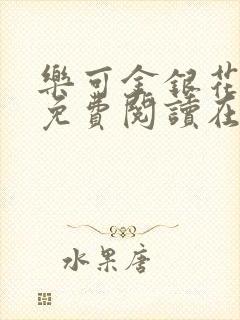 樂可金銀花
免費閱讀在
水果唐